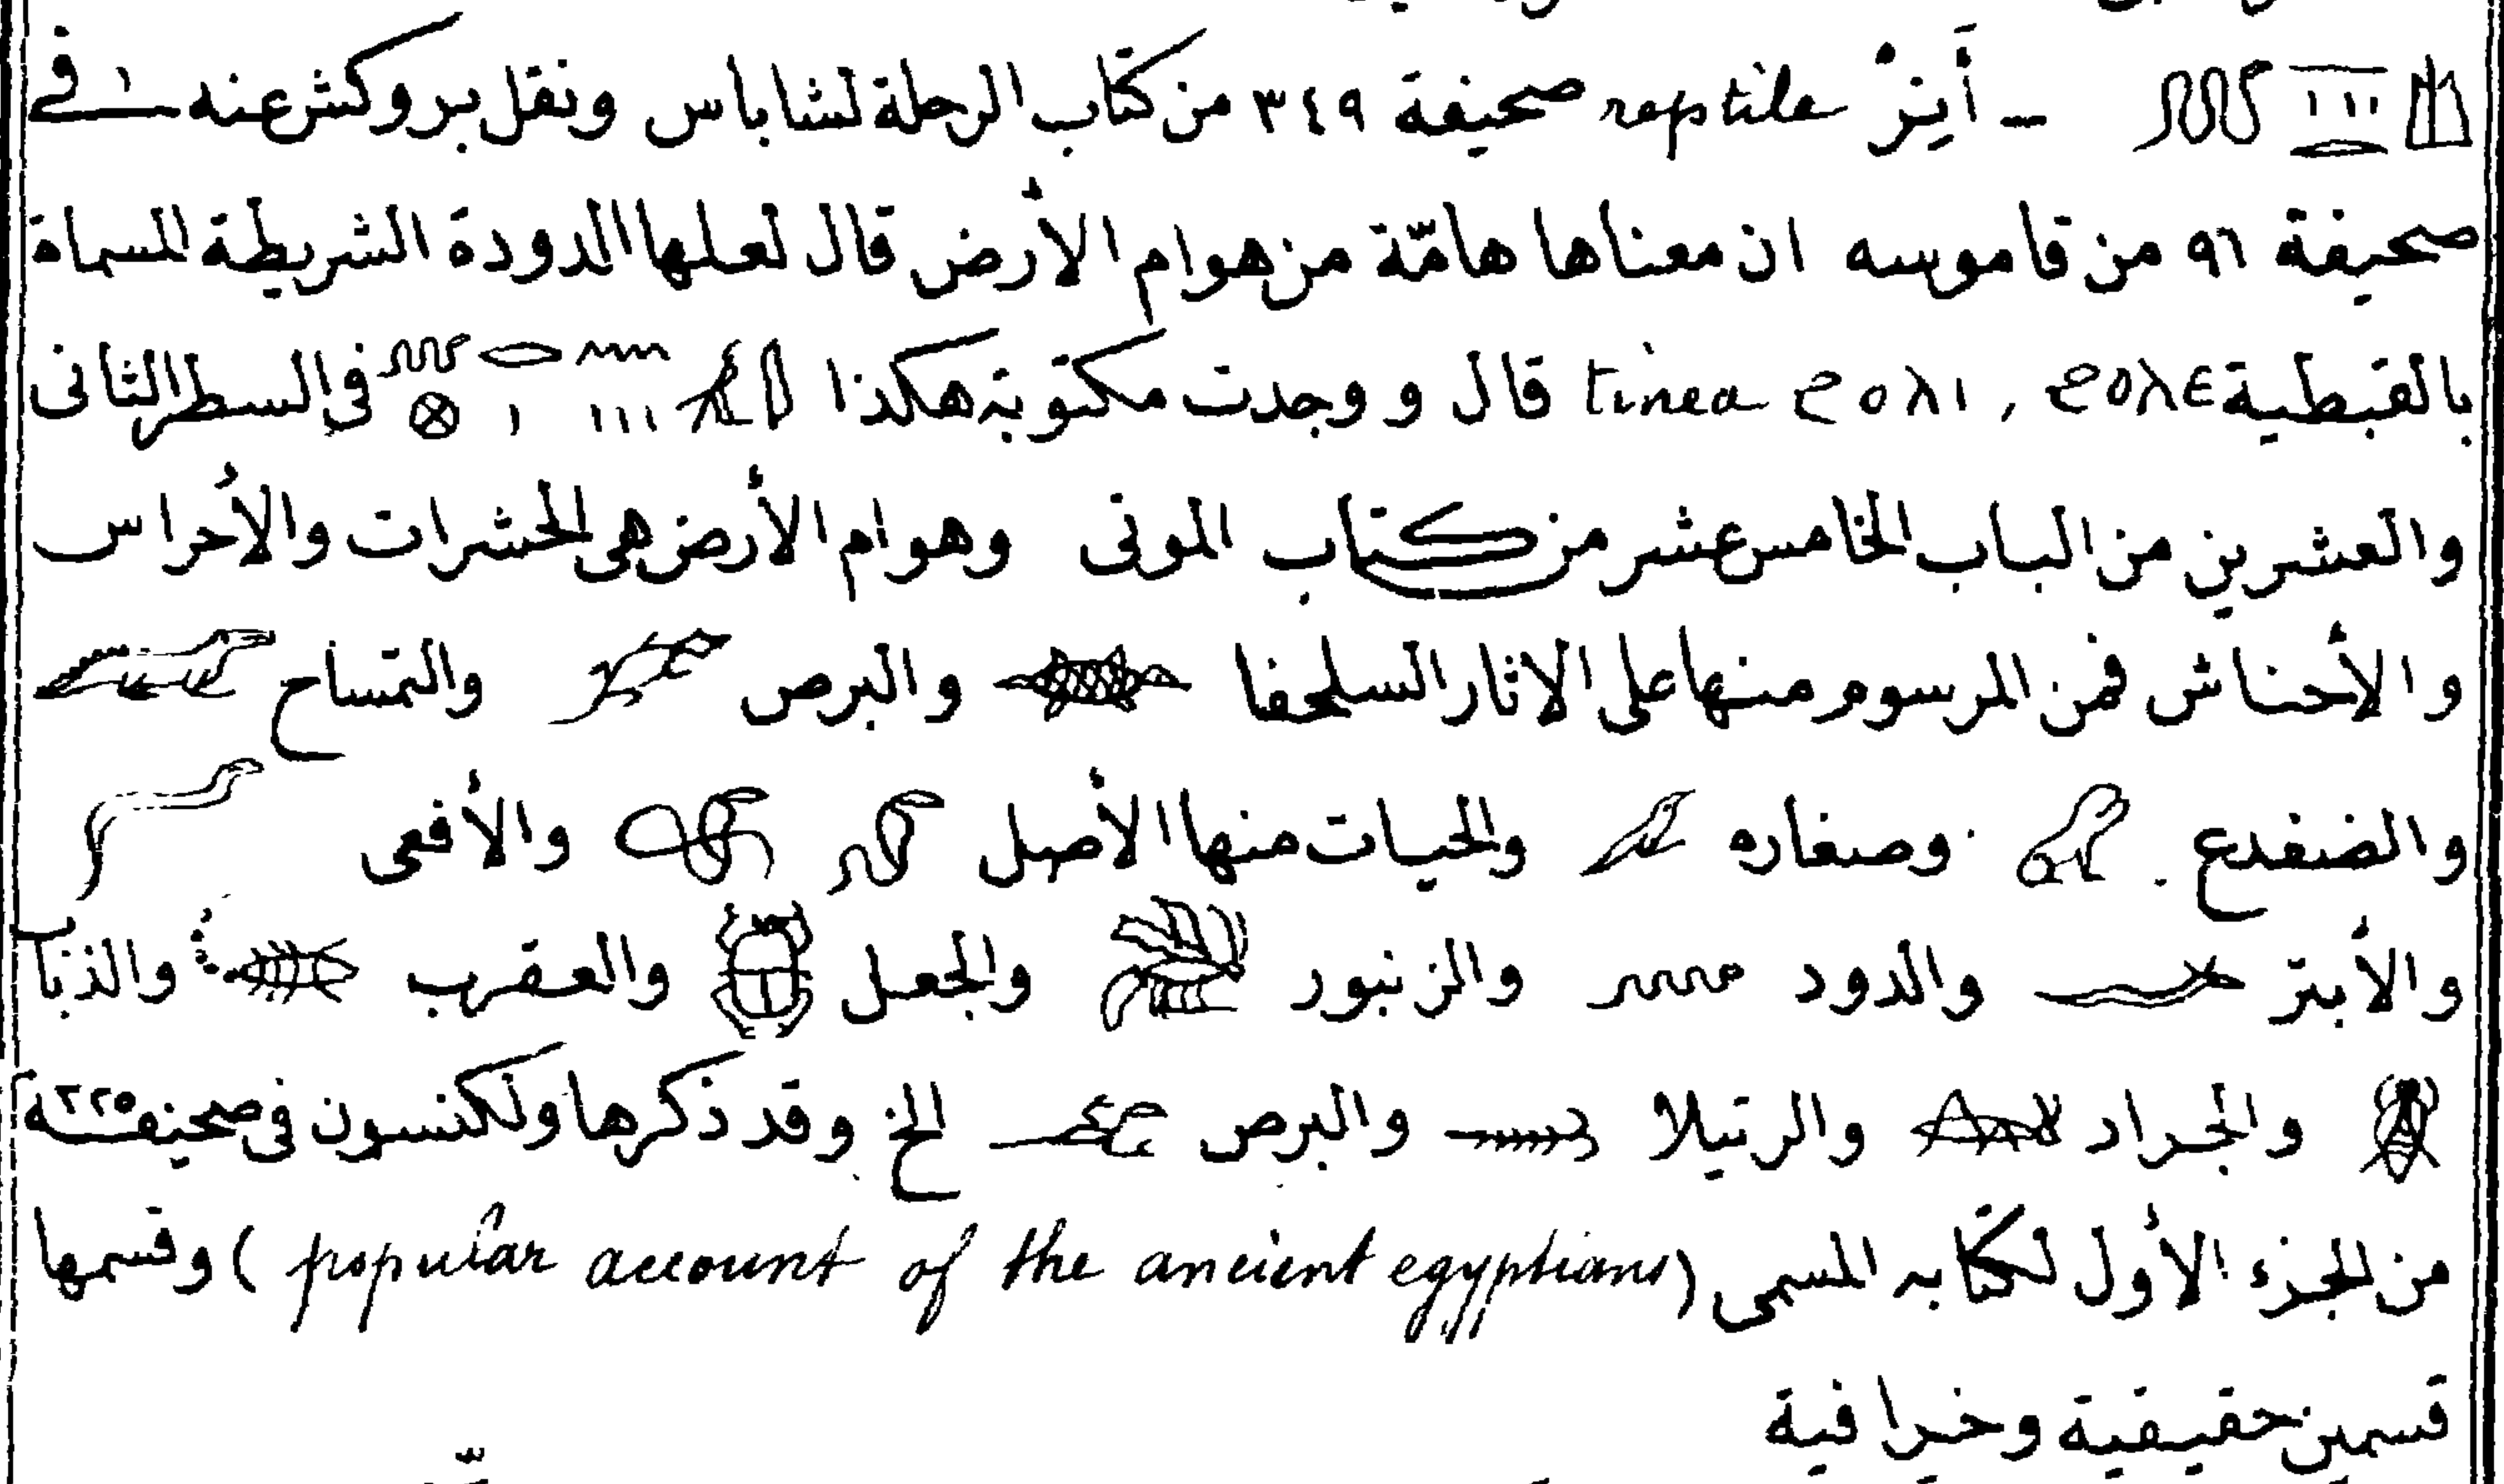 ـ أَيِزْ reptile صحيفة ٣٤٩ من كتاب الرحلة لشاباس ونقل بروكش عنه فى
صحيفة ٩٦ من قاموسه ان معناها هامّة من هوام الأرض قال لعلها الدودة الشريطة المسماة
بالقبطية ϩⲟⲗⲉ , ϩⲟⲗⲓ tinea قال و وجدت مكتوبة هكذا فى السطر الثانى
والعشرين من الباب الخامس عشر من كتاب الموتى وهوام الأرض هى الحشرات والأحراس
والأحناش فمن المرسوم منها على الاثار السلحفا والبرص والتمساح
والضفدع وصغاره والحيات منها الأصل والأفعى
والأبتر والدود والزنبور والجعل والعقرب والذباب
والجراد والرتيلا والبرص الخ وقد ذكرها ولكنسون فى صحيفة ٢٢٥
من الجزء الأول لكتابه المسمى (popular account of the ancient egyptians) وقسمها
قسمين حقيقية وخرافية